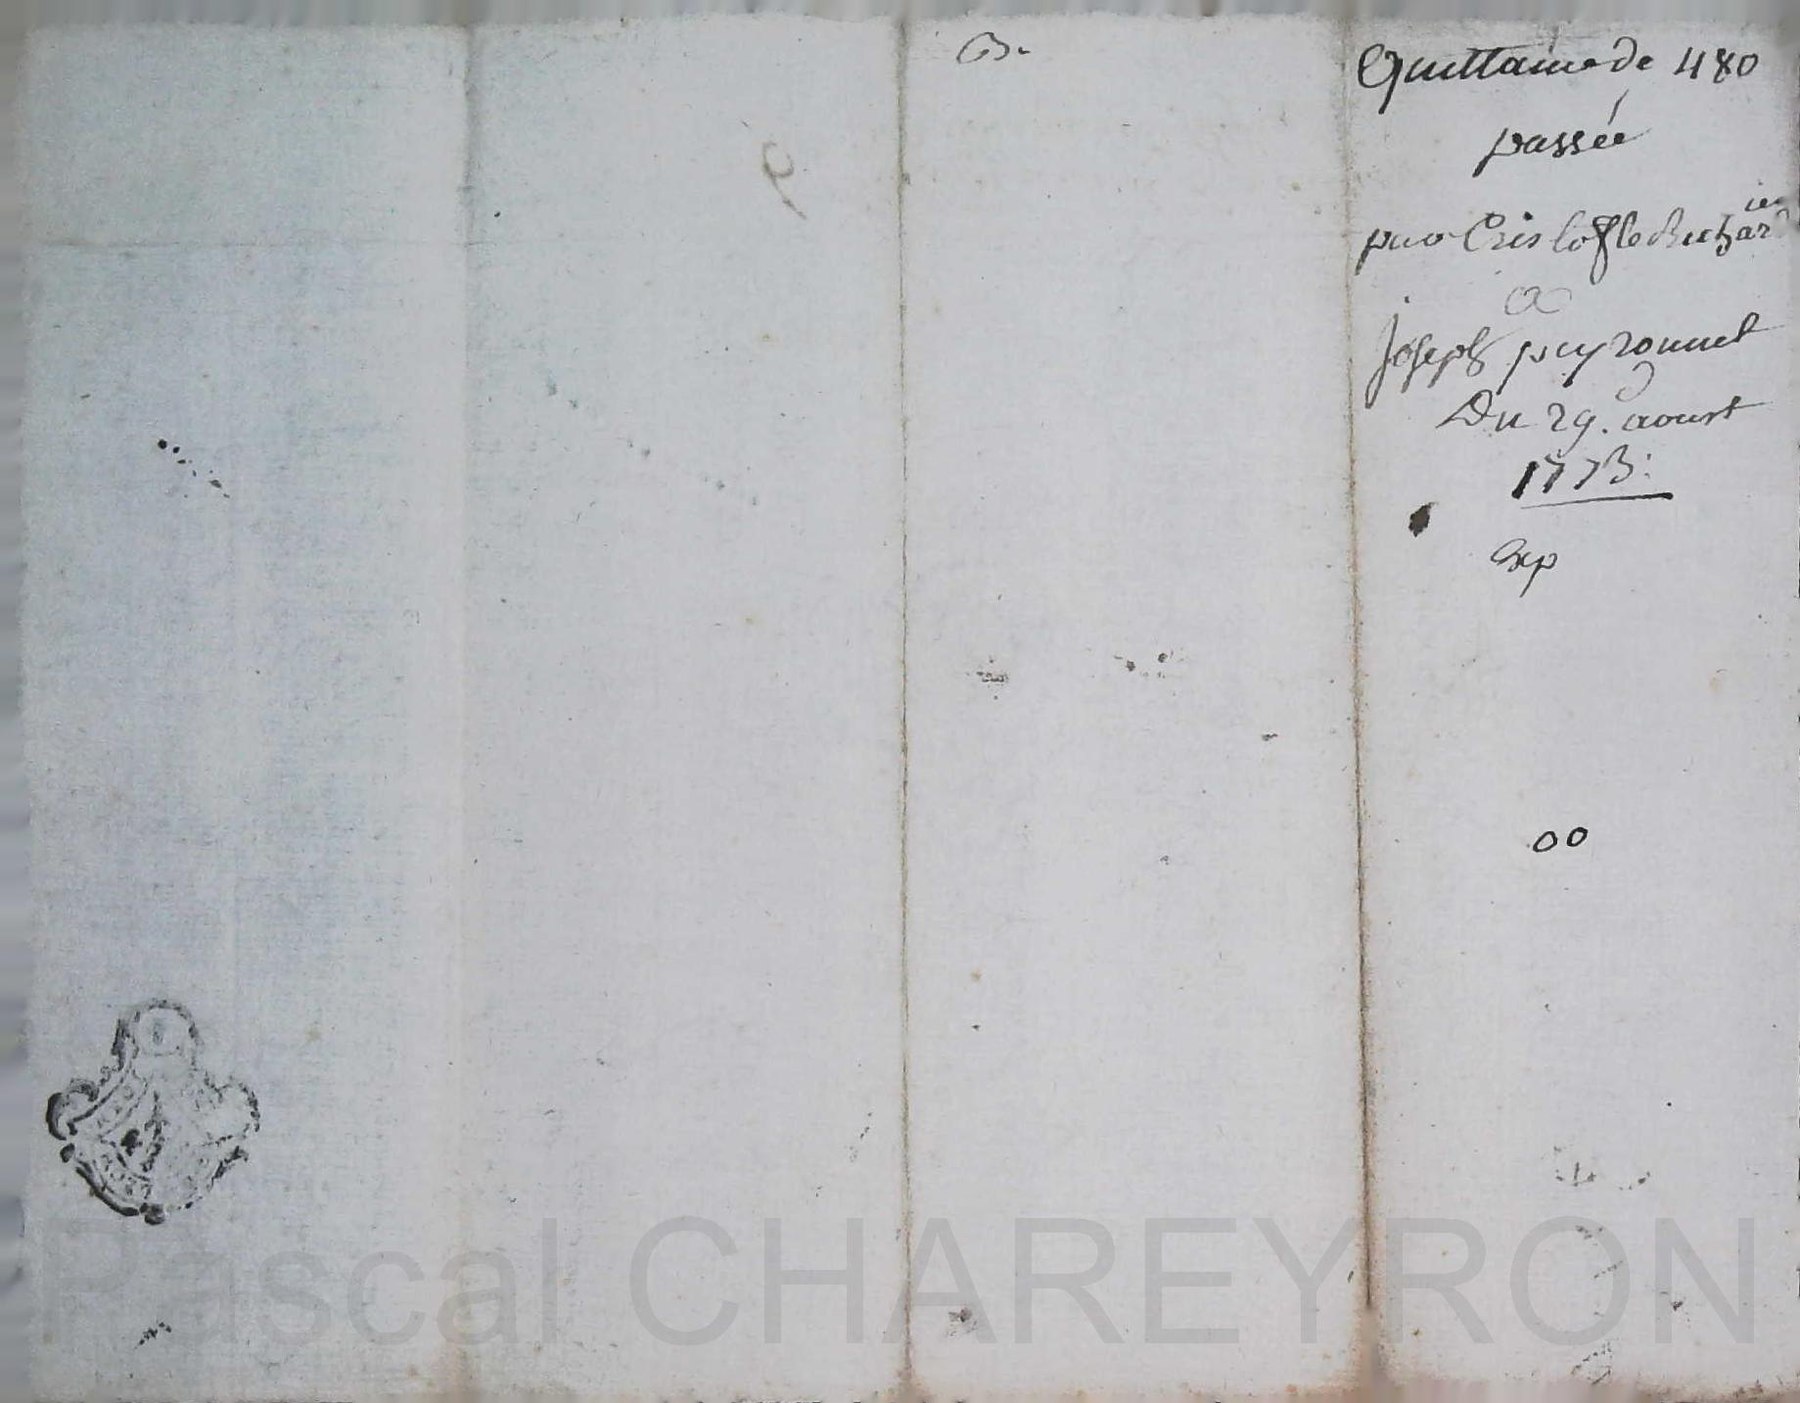 B.
Quittance de 480
passée
par Cristofle Richar
ier
a
Joseph peyronnet
Du 29. aoust
1773:
Exp
00
Pascal CHAREYRON